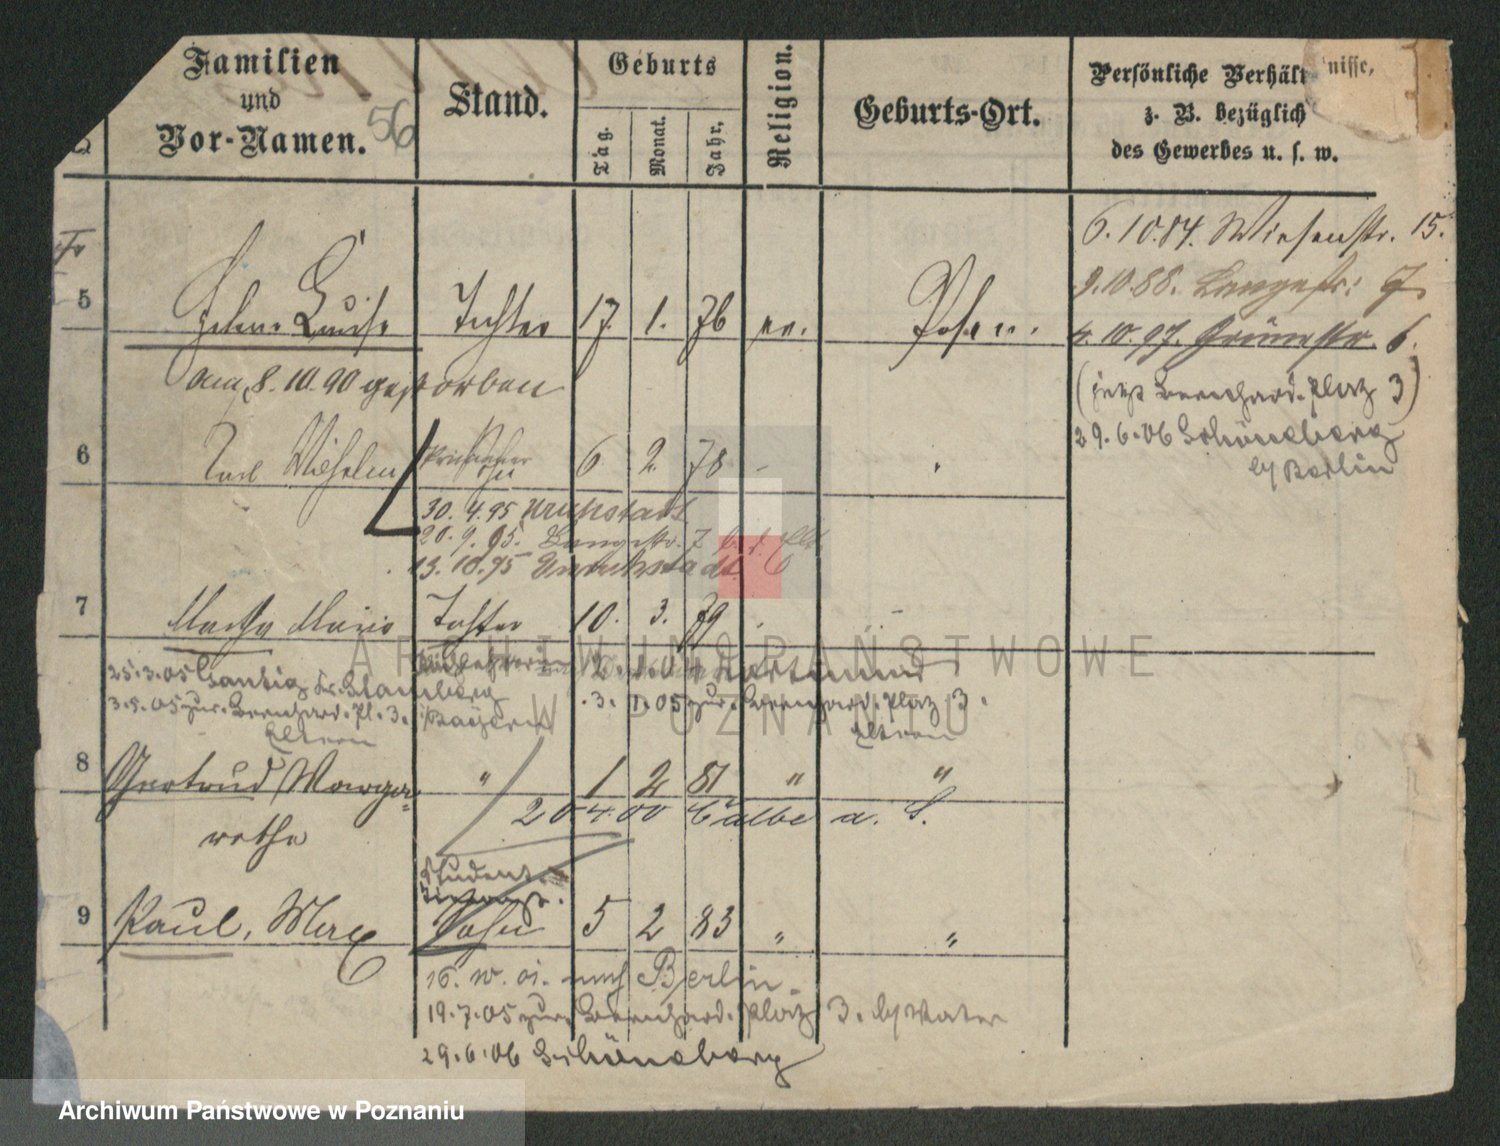 Familien
und
Vor-Namen.
56
Stand.
Geburts
Tag.
Monat.
Jahr.
Religion.
Geburts-Ort.
Persönliche Verhältnisse,
z. B. bezüglich
des Gewerbes u. s. w.
6.10.84. Wiesenstr. 15.
9.10.88. Langestr. 7
4.10.97. Grünestr. 6.
(jetzt Bernhard. Platz 3)
29.6.06 Schöneberg
b/ Berlin
5 Helene Luise Tochter 17. 1. 76 ev. Posen.
Am 8.10.90 gestorben
6 Carl Wilhelm 6 2. 78
30.4.95
20.9.95. Langestr. 7
13.10.95
7 Martha Marie Tochter 10. 3. 79
25.3.05
3.5.05 zur. Bernhard. Pl. 3.
Eltern
Bayern
.3. 1.05 zur. Bernhard. Platz 3.
Eltern
8 Gertrud Marga= " 1 2 81 " "
rethe
20.4.00 Calbe a. S.
Student
9 Paul, Max Sohn 5 2 83 " "
nach Berlin.
19.7.05 zur. Bernhard. Platz 3. b/ Vater
29.6.06 Schöneberg
ARCHIWUM PAŃSTWOWE
W POZNANIU
Archiwum Państwowe w Poznaniu